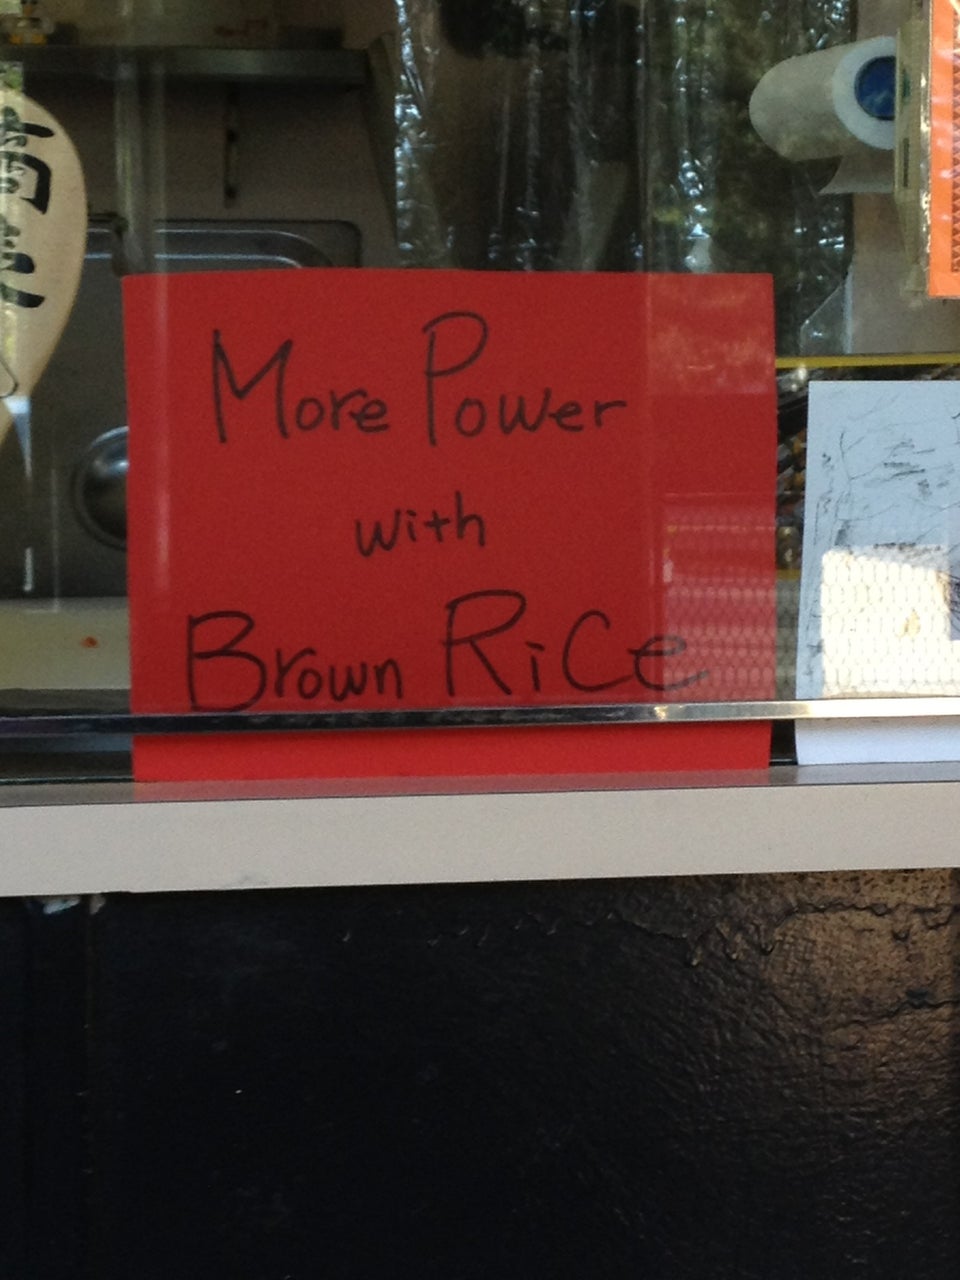 More Power
with
Brown Rice